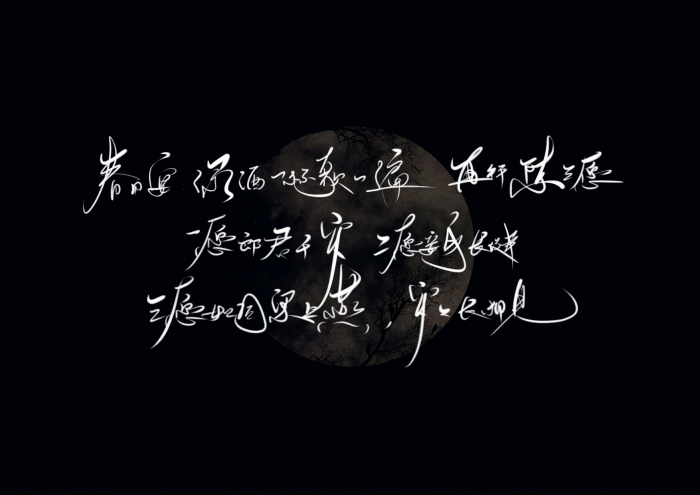 春日宴 绿酒一杯歌一遍 再拜陈三愿
一愿郎君千岁 二愿妾身长健
三愿如同梁上燕，岁岁长相见